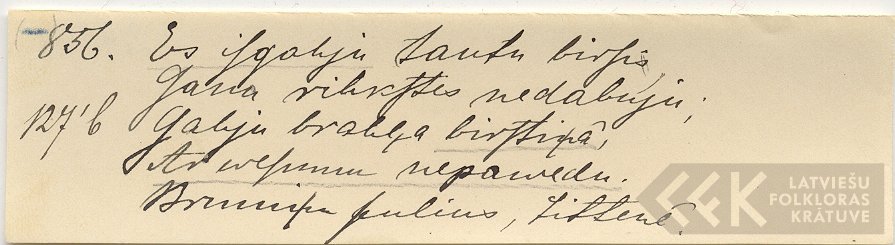 836. Es isgahju tautu birsis,
Gana rihkstes nedabuju;
127'b Gahju brahļa birstiņâ,
Ar wesumu nepawedu.
Bruniņu Julius,
LATVIEŠU
FOLKLORAS
KRĀTUVE